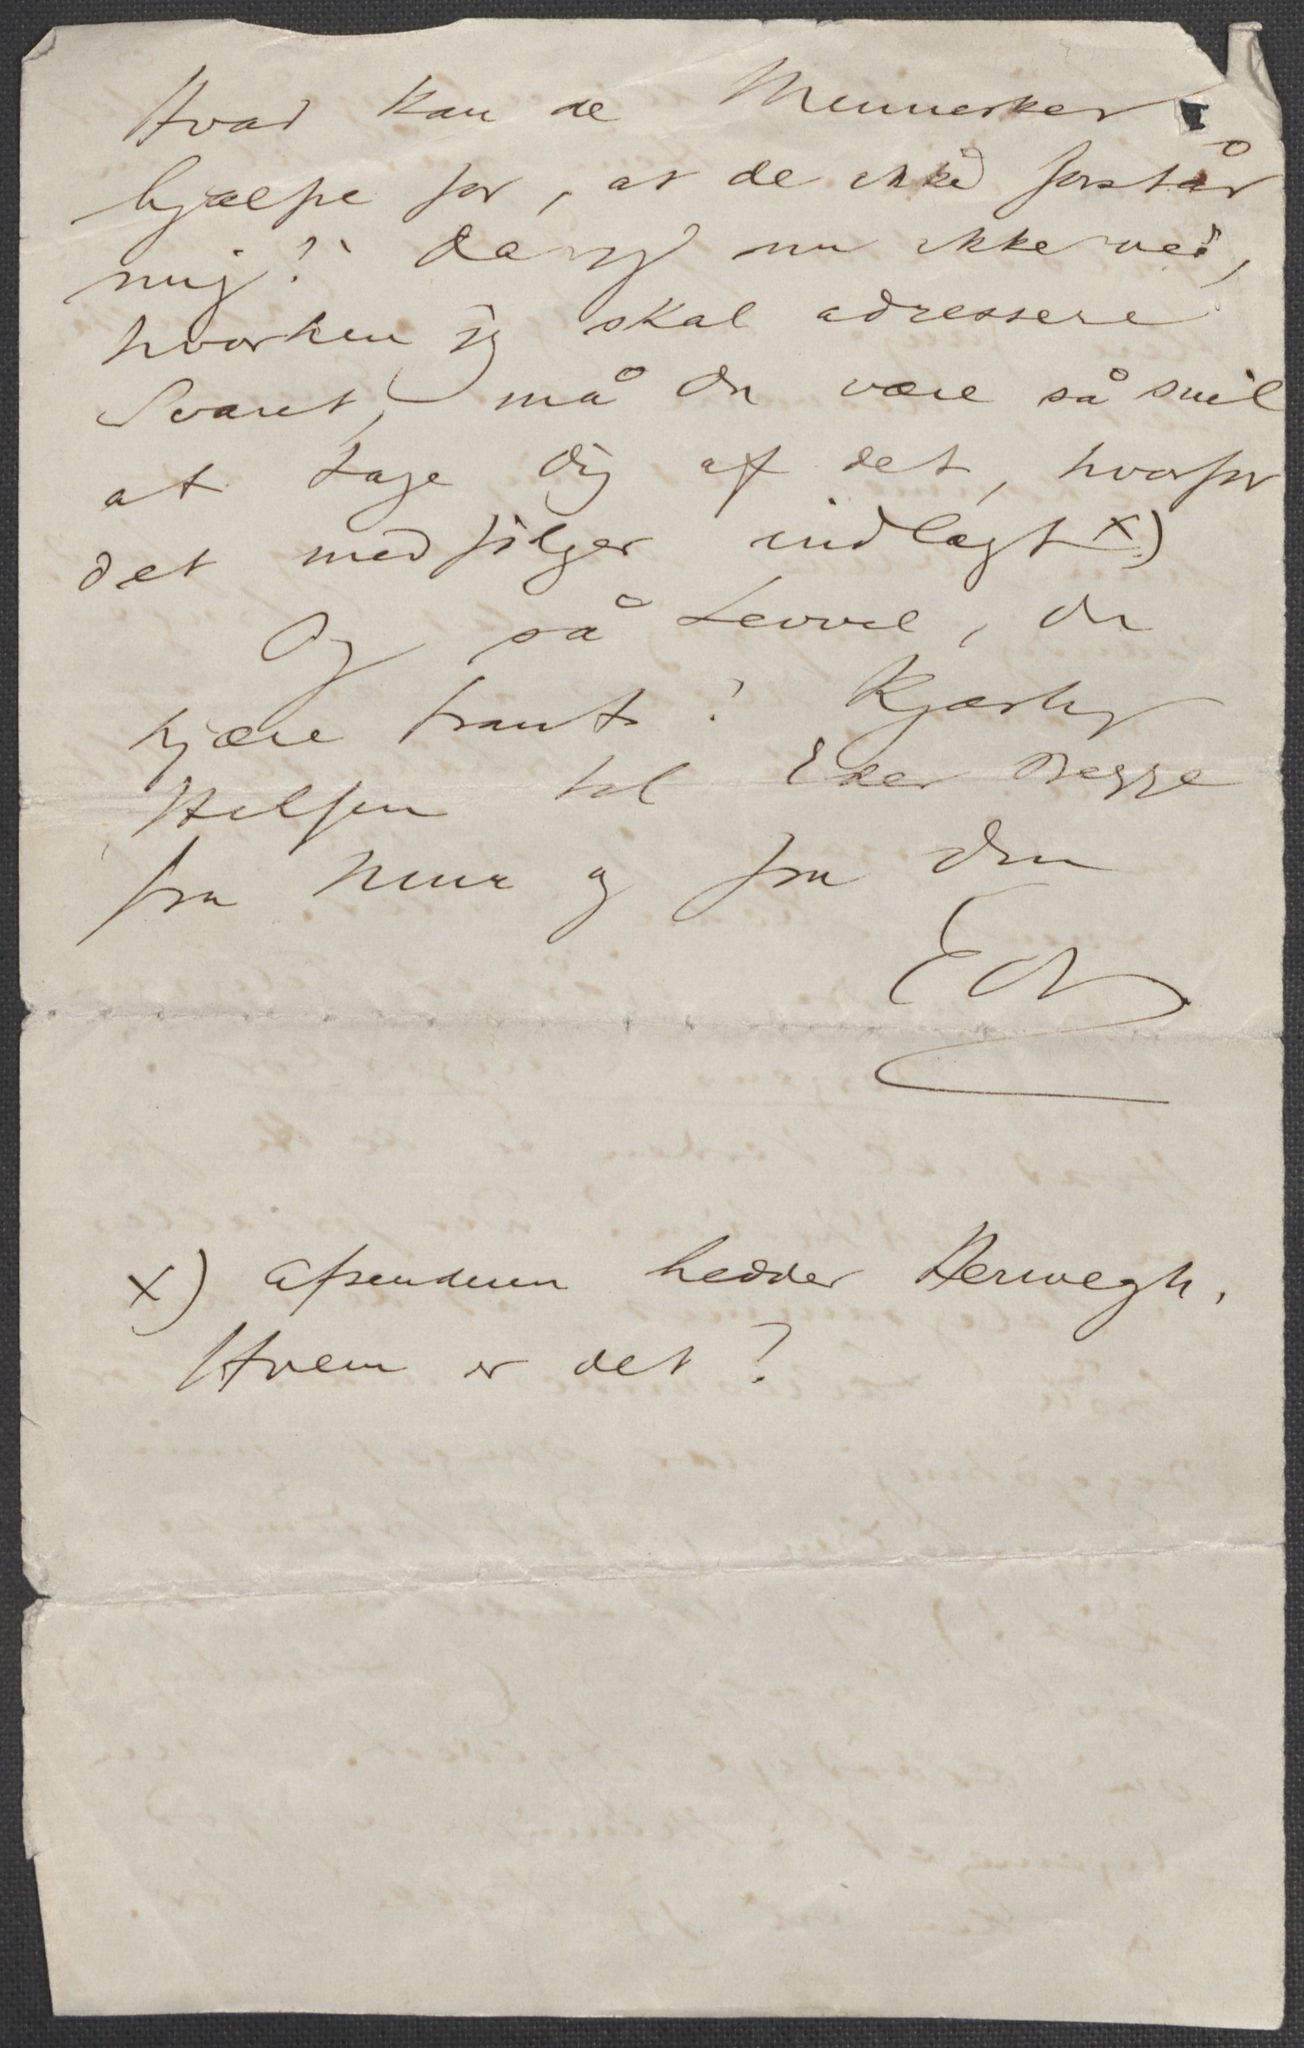 Hvad kan de Mennesker
hjælpe for, at de ikke forstår
mig! Da jeg nu ikke ved,
hvorhen jeg skal adressere
Svaret, må du være så snil
at tage dig af det, hvorfor
det medfølger indlagt x)
Og så Levvel, du
kjære Frants! Kjærlig
Hilsen til Eder Begge
fra Nina og fra din
EG
x) Afsenderen hedder Herwegh.
Hvem er det?